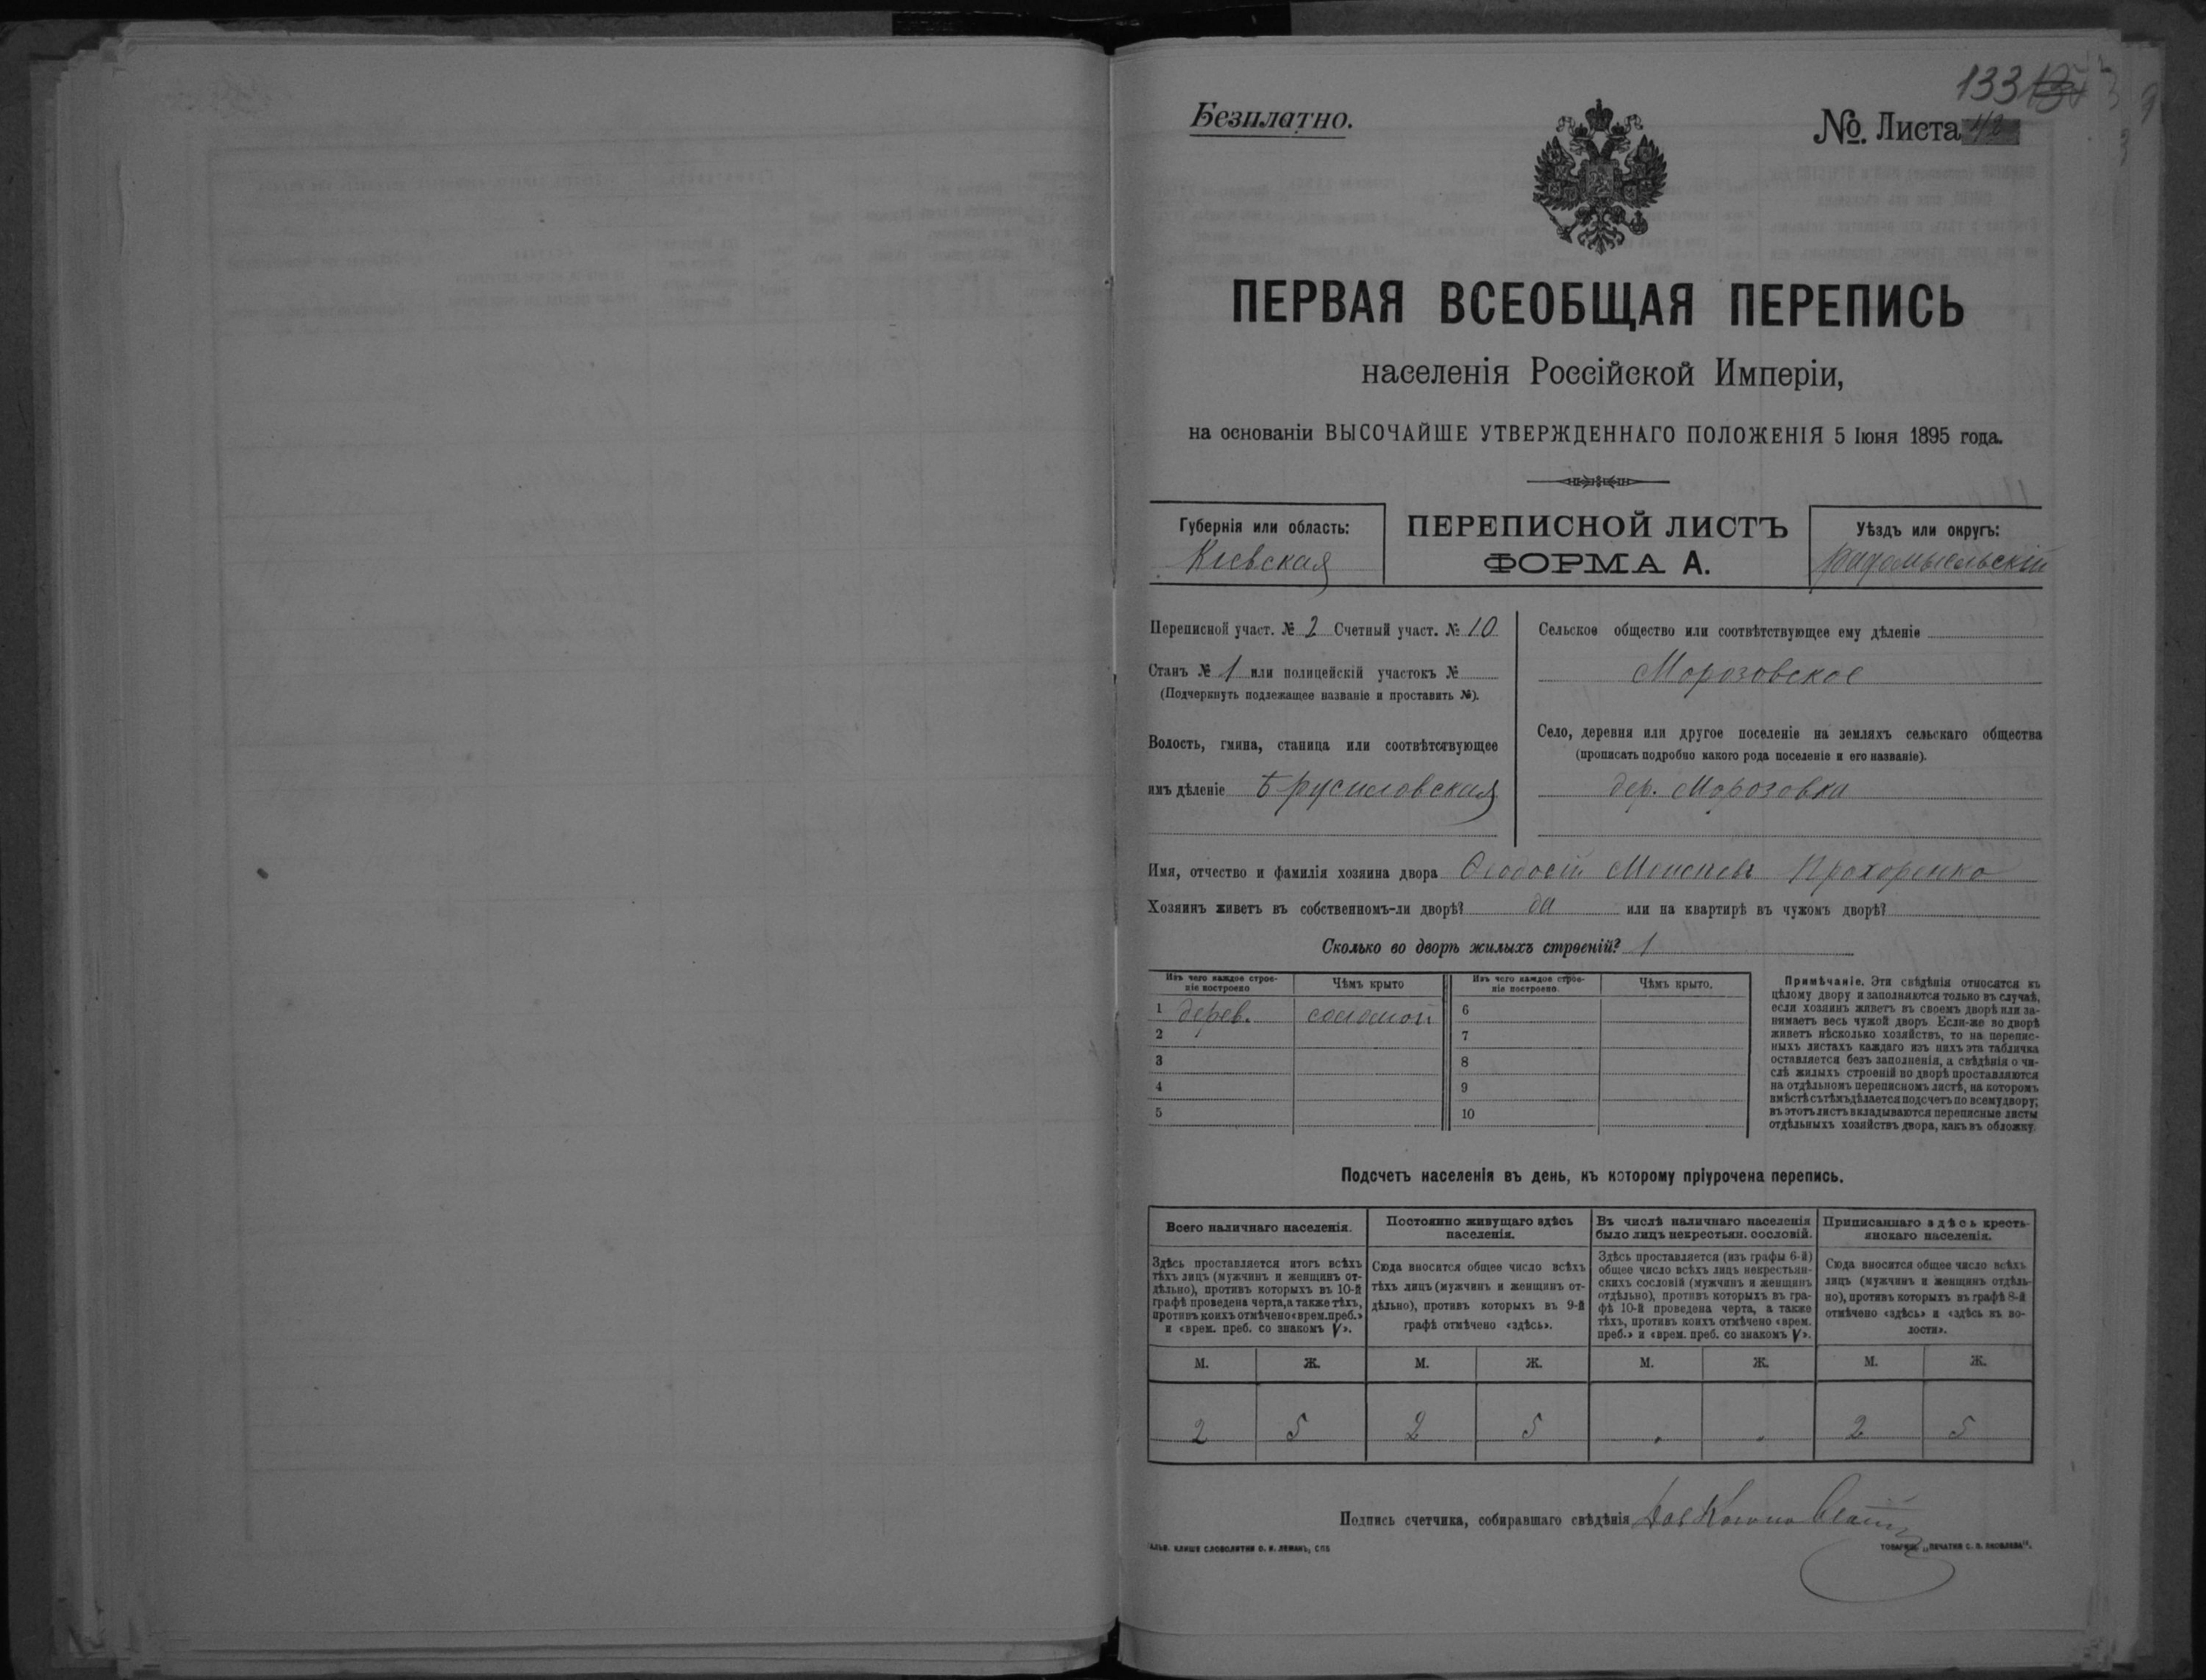 133
Безплатно.
№. Листа 42
ПЕРВАЯ ВСЕОБЩАЯ ПЕРЕПИСЬ
населенія Россійской Имперіи,
на основаніи ВЫСОЧАЙШЕ УТВЕРЖДЕННАГО ПОЛОЖЕНІЯ 5 Іюня 1895 года.
Губернія или область:
Кіевская
ПЕРЕПИСНОЙ ЛИСТЪ
ФОРМА А.
Уѣздъ или округъ:
Радомысльскій
Переписной участ. № 2 Счетный участ. № 10
Станъ № 1 или полицейскій участокъ №
(Подчеркнуть подлежащее названіе и проставить №).
Волость, гмина, станица или соотвѣтствующее
имъ дѣленіе Брусиловская
Сельское общество или соотвѣтствующее ему дѣленіе
Морозовское
Село, деревня или другое поселеніе на земляхъ сельскаго общества
(прописать подробно какого рода поселеніе и его названіе).
дер. Морозовка
Имя, отчество и фамилія хозяина двора Ѳеодосій Моисеевъ Прохоренко
Хозяинъ живетъ въ собственномъ-ли дворѣ? да или на квартирѣ въ чужомъ дворѣ?
Сколько во дворѣ жилыхъ строеній? 1
Изъ чего каждое строе-
ніе построено
Чѣмъ крыто
Изъ чего каждое строе-
ніе построено.
Чѣмъ крыто.
1 дерев. соломой 6
2 7
3 8
4 9
5 10
Примѣчаніе. Эти свѣдѣнія относятся къ
цѣлому двору и заполняются только въ случаѣ,
если хозяинъ живетъ въ своемъ дворѣ или за-
нимаетъ весь чужой дворъ. Если-же во дворѣ
живетъ нѣсколько хозяйствъ, то на перепис-
ныхъ листахъ каждаго изъ нихъ эта табличка
оставляется безъ заполненія, а свѣдѣнія о чи-
слѣ жилыхъ строеній во дворѣ проставляются
на отдѣльномъ переписномъ листѣ, на которомъ
вмѣстѣ съ тѣмъ дѣлается подсчетъ по всему двору;
въ этотъ листъ вкладываются переписные листы
отдѣльныхъ хозяйствъ двора, какъ въ обложку
Подсчетъ населенія въ день, къ которому пріурочена перепись.
Всего наличнаго населенія.
Здѣсь проставляется итогъ всѣхъ
тѣхъ лицъ (мужчинъ и женщинъ от-
дѣльно), противъ которыхъ въ 10-й
графѣ проведена черта, а также тѣхъ,
противъ коихъ отмѣчено «врем. преб.»
и «врем. преб. со знакомъ V».
Постоянно живущаго здѣсь
населенія.
Сюда вносится общее число всѣхъ
тѣхъ лицъ (мужчинъ и женщинъ от-
дѣльно), противъ которыхъ въ 9-й
графѣ отмѣчено «здѣсь».
Въ числѣ наличнаго населенія
было лицъ некрестьян. сословій.
Здѣсь проставляется (изъ графы 6-й)
общее число всѣхъ лицъ некрестьян-
скихъ сословій (мужчинъ и женщинъ
отдѣльно), противъ которыхъ въ гра-
фѣ 10-й проведена черта, а также
тѣхъ, противъ коихъ отмѣчено «врем.
преб.» и «врем. преб. со знакомъ V».
Приписаннаго здѣсь кресть-
янскаго населенія.
Сюда вносится общее число всѣхъ
лицъ (мужчинъ и женщинъ отдѣль-
но), противъ которыхъ въ графѣ 8-й
отмѣчено «здѣсь» и «здѣсь въ во-
лости».
М. Ж. М. Ж. М. Ж. М. Ж.
2 5 2 5 " " 2 5
Подпись счетчика, собиравшаго свѣдѣнія
ГАЛЬВ. КЛИШЕ СЛОВОЛИТНИ О. И. ЛЕМАНЪ, СПБ
ТОВАРИЩ. „ПЕЧАТНЯ С. П. ЯКОВЛЕВА".